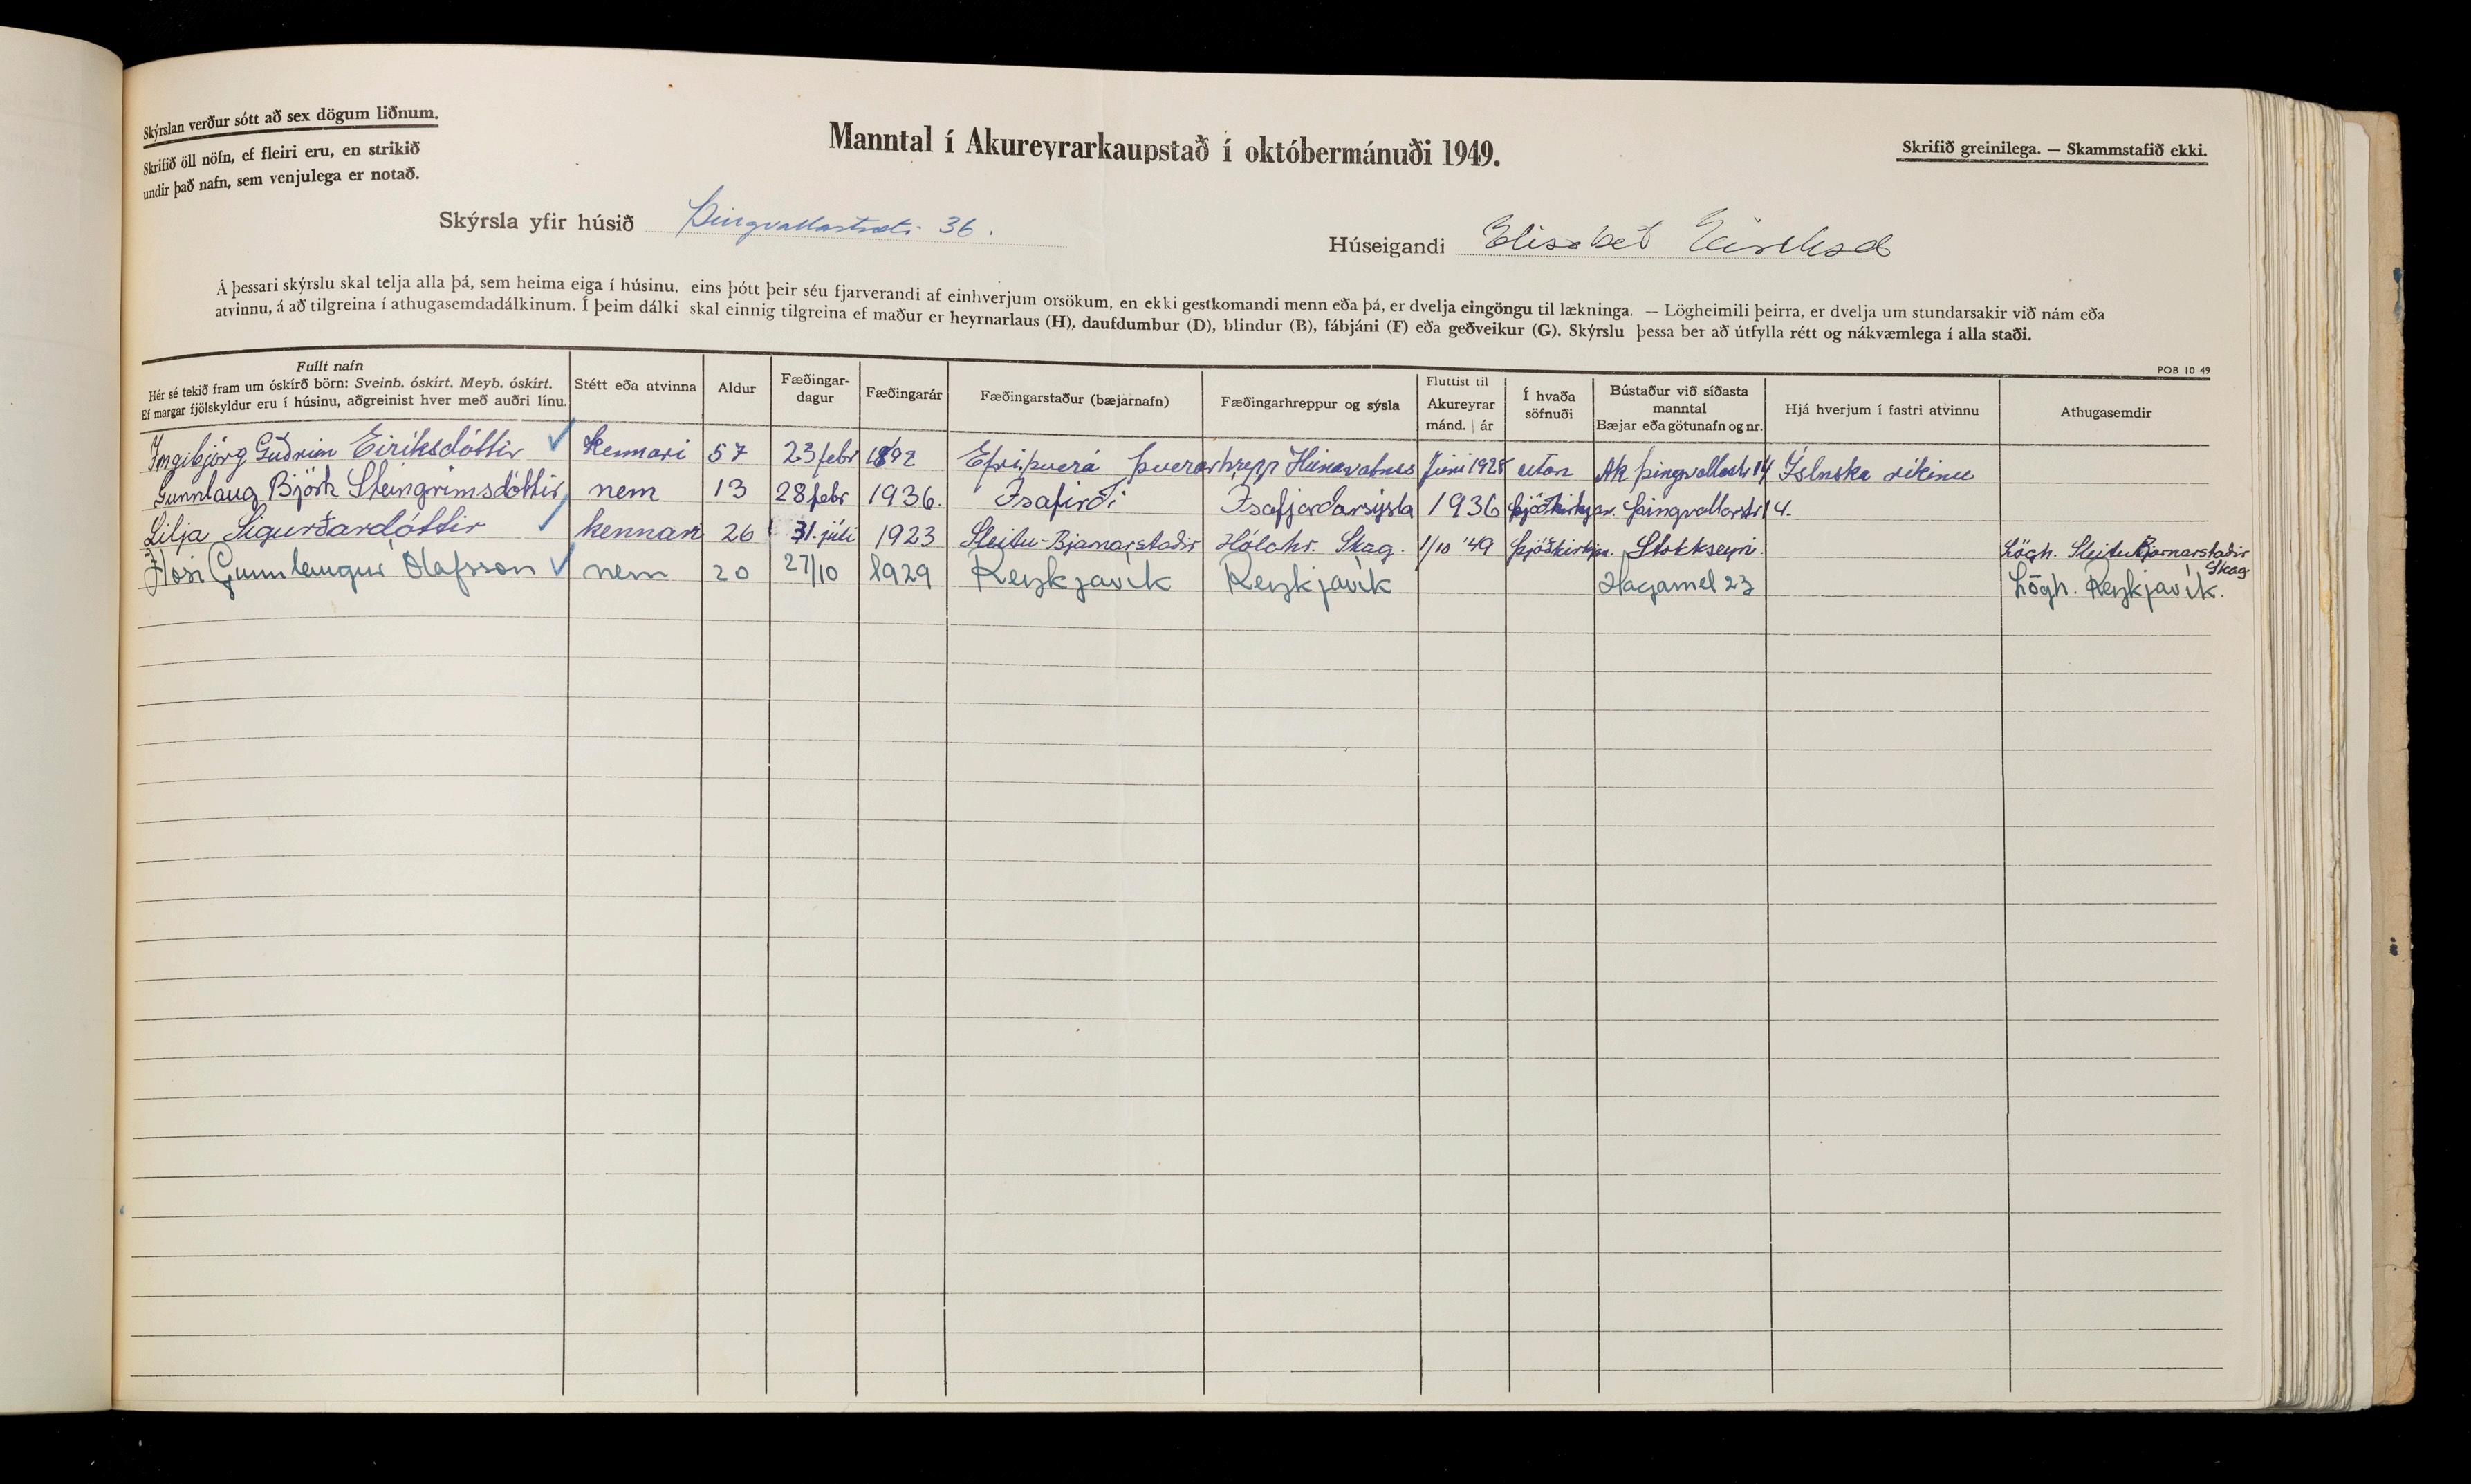 Skýrslan verður sótt að sex dögum liðnum.
Skrifið öll nöfn, ef fleiri eru, en strikið
undir það nafn, sem venjulega er notað.
Manntal í Akureyrarkaupstað í októbermánuði 1949.
Skrifið greinilega. — Skammstafið ekki.
Skýrsla yfir húsið Þingvallastræti 36.
Húseigandi Elisabet Eiríksd
Á þessari skýrslu skal telja alla þá, sem heima eiga í húsinu, eins þótt þeir séu fjarverandi af einhverjum orsökum, en ekki gestkomandi menn eða þá, er dvelja eingöngu til lækninga. — Lögheimili þeirra, er dvelja um stundarsakir við nám eða
atvinnu, á að tilgreina í athugasemdadálkinum. Í þeim dálki skal einnig tilgreina ef maður er heyrnarlaus (H), daufdumbur (D), blindur (B), fábjáni (F) eða geðveikur (G). Skýrslu þessa ber að útfylla rétt og nákvæmlega í alla staði.
POB 10 49
Fullt nafn
Hér sé tekið fram um óskírð börn: Sveinb. óskírt. Meyb. óskírt.
Ef margar fjölskyldur eru í húsinu, aðgreinist hver með auðri línu.
Stétt eða atvinna
Aldur
Fæðingar-
dagur
Fæðingarár
Fæðingarstaður (bæjarnafn)
Fæðingarhreppur og sýsla
Fluttist til
Akureyrar
mánd. | ár
Í hvaða
söfnuði
Bústaður við síðasta
manntal
Bæjar eða götunafn og nr.
Hjá hverjum í fastri atvinnu
Athugasemdir
Ingibjörg Guðrún Eiríksdóttir Kennari 57 23 febr 1892 Efri þverá þverárhrepp Húnavatnss Júní 1928 utan Ak þingvallastr 14 Íslnska ríkinu
Gunnlaug Björk Steingrímsdóttir nem 13 28 febr 1936. Ísafirði Ísafjarðarsýsla 1936 þjóðkirkjan. þingvallastr 14.
Lilja Sigurðardóttir kennari 26 31. júli 1923 Sleitu-Bjarnarstaðir Hólahr. Skag. 1/10 '49 þjóðkirkjan. Stokkseyri. Lögh. Sleitubjarnarstaðir Skag
Gunnlaugur Ólafsson nem 20 27/10 1929 Reykjavík Reykjavík Hagamel 23 Lögh. Reykjavík.